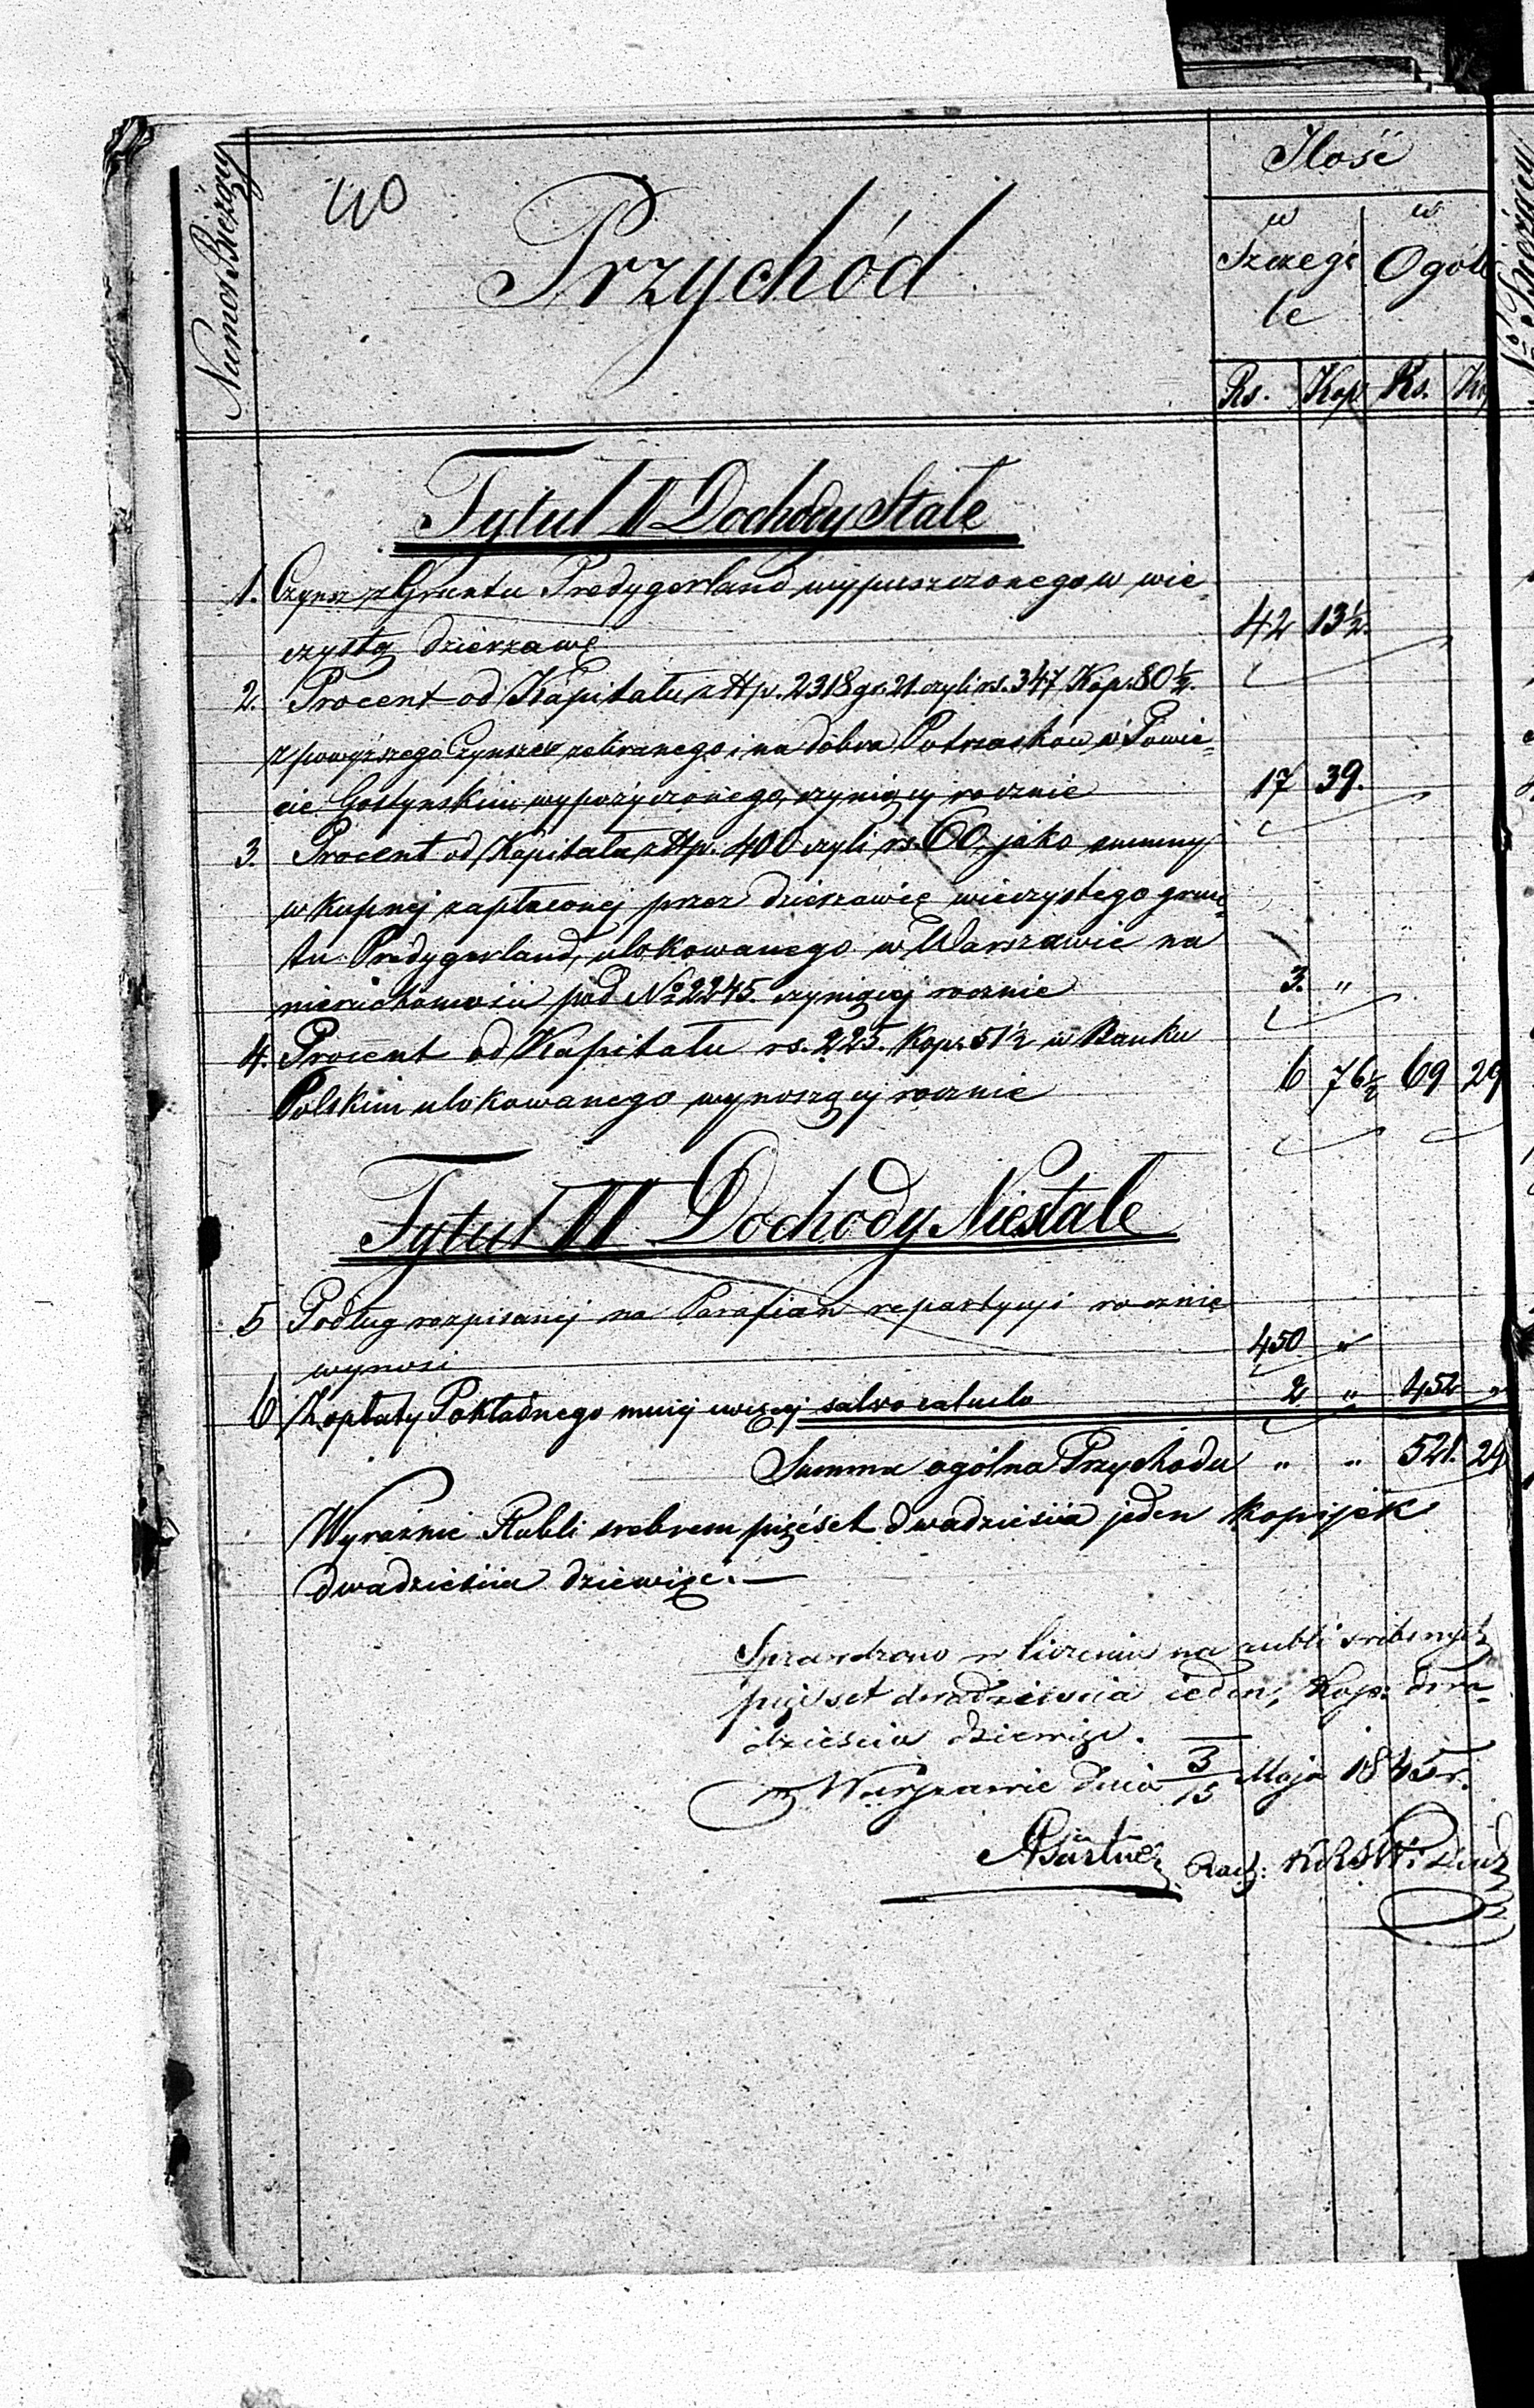 Numer Bieżący
40
Przychód
Ilość
w Szczegó
le
w Ogóle
Rs. Kop Rs. Kop
Tytuł I Dochody Stałe
1. Czynsz z Gruntu Predygerland wypuszczonego w wie-
czystą dzierzawę 42 13½.
2. Procent od Kapitału złp. 2318 gr. 21. czyli rs. 347 Kop. 80½.
z powyższego Czynszu zebranego i na dobra Potrzasków w Powie-
cie Gostynskim wypożyczonego, czyniący rocznie 17 39.
3. Procent od Kapitału złp. 400 czyli rs. 60. jako summy
wkupnej zapłaconej przez dzierzawcę wieczystego grun-
tu Predygerland, ulokowanego w Warszawie na
nieruchomości pod No 2245. czyniący rocznie 3. "
4. Procent od Kapitału rs. 225. Kop. 51½ w Banku
Polskim ulokowanego wynoszący rocznie 6 76½ 69 29
Tytuł II Dochody Niestałe
5 Podług rozpisanej na Parafian repartycyi rocznie
wynosi 450 "
6 Z opłaty Pokładnego mniej więcej salvo calculo 2 " 452 "
Summa ogólna Przychodu " " 521. 29
Wyraźnie Rubli srebrem pięćset dwadzieścia jeden kopijek
dwadzieścia dziewięć. —
Sprawdzono w liczeniu na rubli srebrnych
pięćset dwadzieścia ieden, Kop: dwa-
dzieścia dziewięć.
W Warszawie dnia 3/15 Maja 1845 r.
Rach: KRSW i Duch